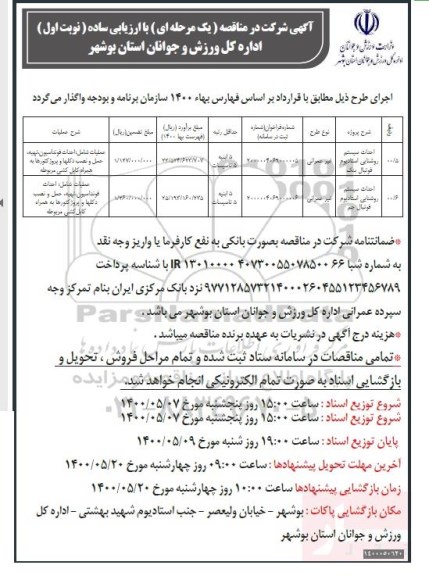 آگهی شرکت در مناقصه ( یک مرحله ای ) با ارزیابی ساده ( نوبت اول )
اداره کل ورزش و جوانان استان بوشهر
وزارت ورزش و جوانان
اداره کل ورزش و جوانان استان بوشهر
اجرای طرح ذیل مطابق با قرارداد بر اساس فهارس بهاء ۱۴۰۰ سازمان برنامه و بودجه واگذار می‌گردد
ردیف شرح پروژه نوع طرح شماره فراخوان(شماره ثبت در سامانه) حداقل رتبه مبلغ برآورد (ریال) (فهرست بها ۱۴۰۰) مبلغ تضمین(ریال) شرح عملیات
۰۰/۵ احداث سیستم روشنایی استادیوم فوتبال غیر عمرانی ۵ ابنیه ۵ تاسیسات عملیات شامل:احداث فونداسیون،تهیه، حمل و نصب دکلها و پروژکتورها به همراه کابل کشی مربوطه
۰۰/۶ احداث سیستم روشنایی استادیوم فوتبال غیر عمرانی ۵ ابنیه ۵ تاسیسات عملیات شامل: احداث فونداسیون،تهیه، حمل و نصب دکلها و پروژکتورها به همراه کابل کشی مربوطه
*ضمانتنامه شرکت در مناقصه بصورت بانکی به نفع کارفرما یا واریز وجه نقد
به شماره شبا ۶۶ ۴۰۷۳۰۰۵۵۰۷۸۵۰۰ IR ۱۳۰۱۰۰۰۰ با شناسه پرداخت
۹۷۷۱۲۸۵۷۳۲۱۴۰۰۰۲۶۰۴۵۵۱۲۳۴۵۶۷۸۹ نزد بانک مرکزی ایران بنام تمرکز وجه
سپرده عمرانی اداره کل ورزش و جوانان استان بوشهر می باشد .
*هزینه درج آگهی در نشریات به عهده برنده مناقصه میباشد .
*تمامی مناقصات در سامانه ستاد ثبت شده و تمام مراحل فروش ، تحویل و
بازگشایی اسناد به صورت تمام الکترونیکی انجام خواهد شد.
شروع توزیع اسناد : ساعت ۱۵:۰۰ روز پنجشنبه مورخ ۱۴۰۰/۰۵/۰۷
شروع توزیع اسناد : ساعت ۱۵:۰۰ روز پنجشنبه مورخ ۱۴۰۰/۰۵/۰۷
پایان توزیع اسناد : ساعت ۱۹:۰۰ روز شنبه مورخ ۱۴۰۰/۰۵/۰۹
آخرین مهلت تحویل پیشنهادها : ساعت ۰۹:۰۰ روز چهارشنبه مورخ ۱۴۰۰/۰۵/۲۰
زمان بازگشایی پیشنهادها ساعت ۱۰:۰۰ روز چهارشنبه مورخ ۱۴۰۰/۰۵/۲۰
مکان بازگشایی پاکات : بوشهر - خیابان ولیعصر - جنب استادیوم شهید بهشتی - اداره کل
ورزش و جوانان استان بوشهر
۱۴۰۰۰۵۰۶۲۰